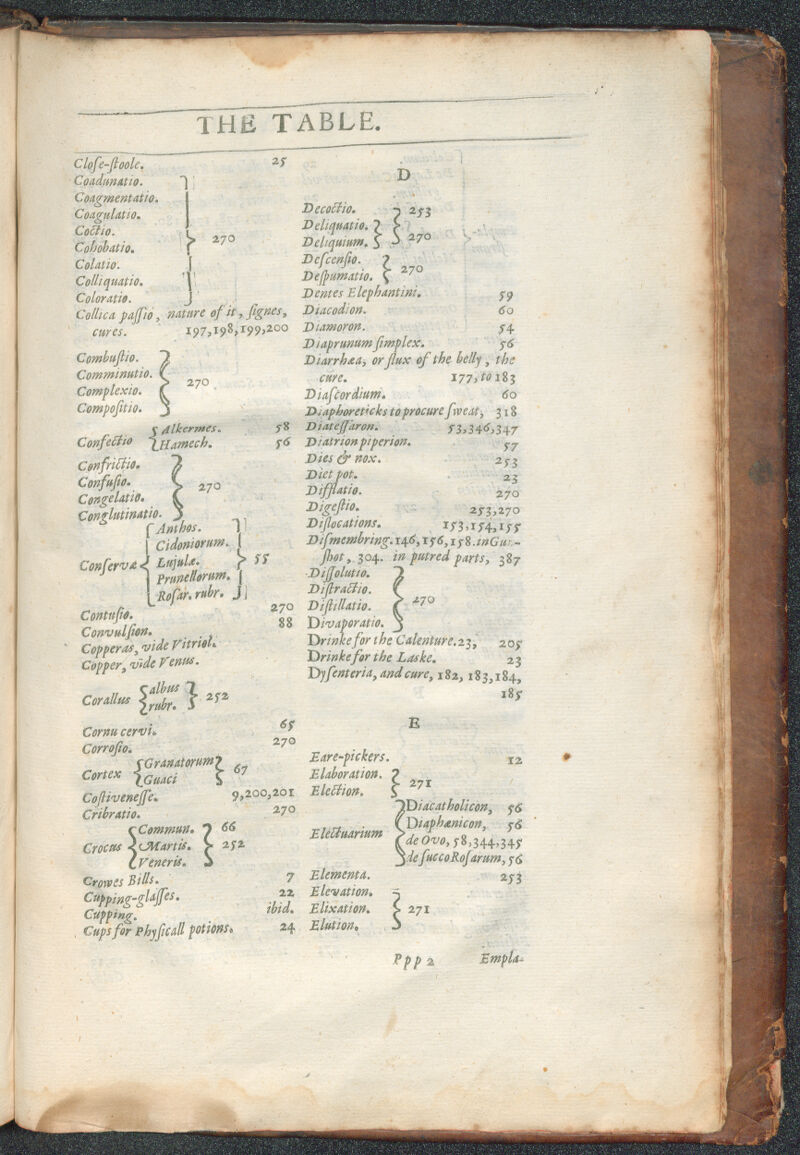 THE TABLE.
Cloſe-ſtoole. 25
Coadunatio.
Coagmentatio.
Coagulatio.
Coctio.
Cohobatio. 270
Colatio.
Colliquatio.
Coloratio.
Collica paſſio, nature of it, ſignes,
cures. 197,198,199,200
Combuſtio.
Comminutio.
Complexio. 270
Compoſitio.
Confectio Alkermes. 58
Hamech. 56
Confrictio.
Confuſio.
Congelatio. 270
Conglutinatio.
Anthos.
Cidoniorum.
Conſervæ Lujulæ. 55
Prunellorum.
Roſar. rubr.
Contuſio. 270
Convulſion. 88
Copperas, vide Vitriol.
Copper, vide Venus.
Corallus albus
rubr. 252
Cornu cervi. 65
Corroſio. 270
Cortex Granatorum
Guaci 67
Coſtiveneſſe. 9,200,201
Cribratio. 270
Commun. 66
Crocus Martis. 252
Veneris.
Crowes Bills. 7
Cupping-glaſſes. 22
Cupping. ibid.
Cups for Phyſicall potions. 24
D
Decoctio. 253
Deliquatio.
Deliquium. 270
Deſcenſio.
Deſpumatio. 270
Dentes Elephantini. 59
Diacodion. 60
Diamoron. 54
Diaprunum ſimplex. 56
Diarrhæa, or flux of the belly, the
cure. 177, to 183
Diaſcordium. 60
Diaphoreticks to procure ſweat, 318
Diateſſaron. 53,346,347
Diatrion piperion. 57
Dies & nox. 253
Diet pot. 23
Difflatio. 270
Digeſtio. 253,270
Diſlocations. 153,154,155
Diſmembring. 146,156,158. in Gun-
ſhot, 304. in putred parts, 387
Diſſolutio.
Diſtractio.
Diſtillatio. 270
Divaporatio.
Drinke for the Calenture. 23, 205
Drinke for the Laske. 23
Dyſenteria, and cure, 182, 183,184,
185
E
Eare-pickers. 12
Elaboration.
Election. 271
Diacatholicon, 56
Electuarium Diaphænicon, 56
de Ovo, 58,344,345
de ſucco Roſarum, 56
Elementa. 253
Elevation.
Elixation. 271
Elution.
Ppp 2 Empla-